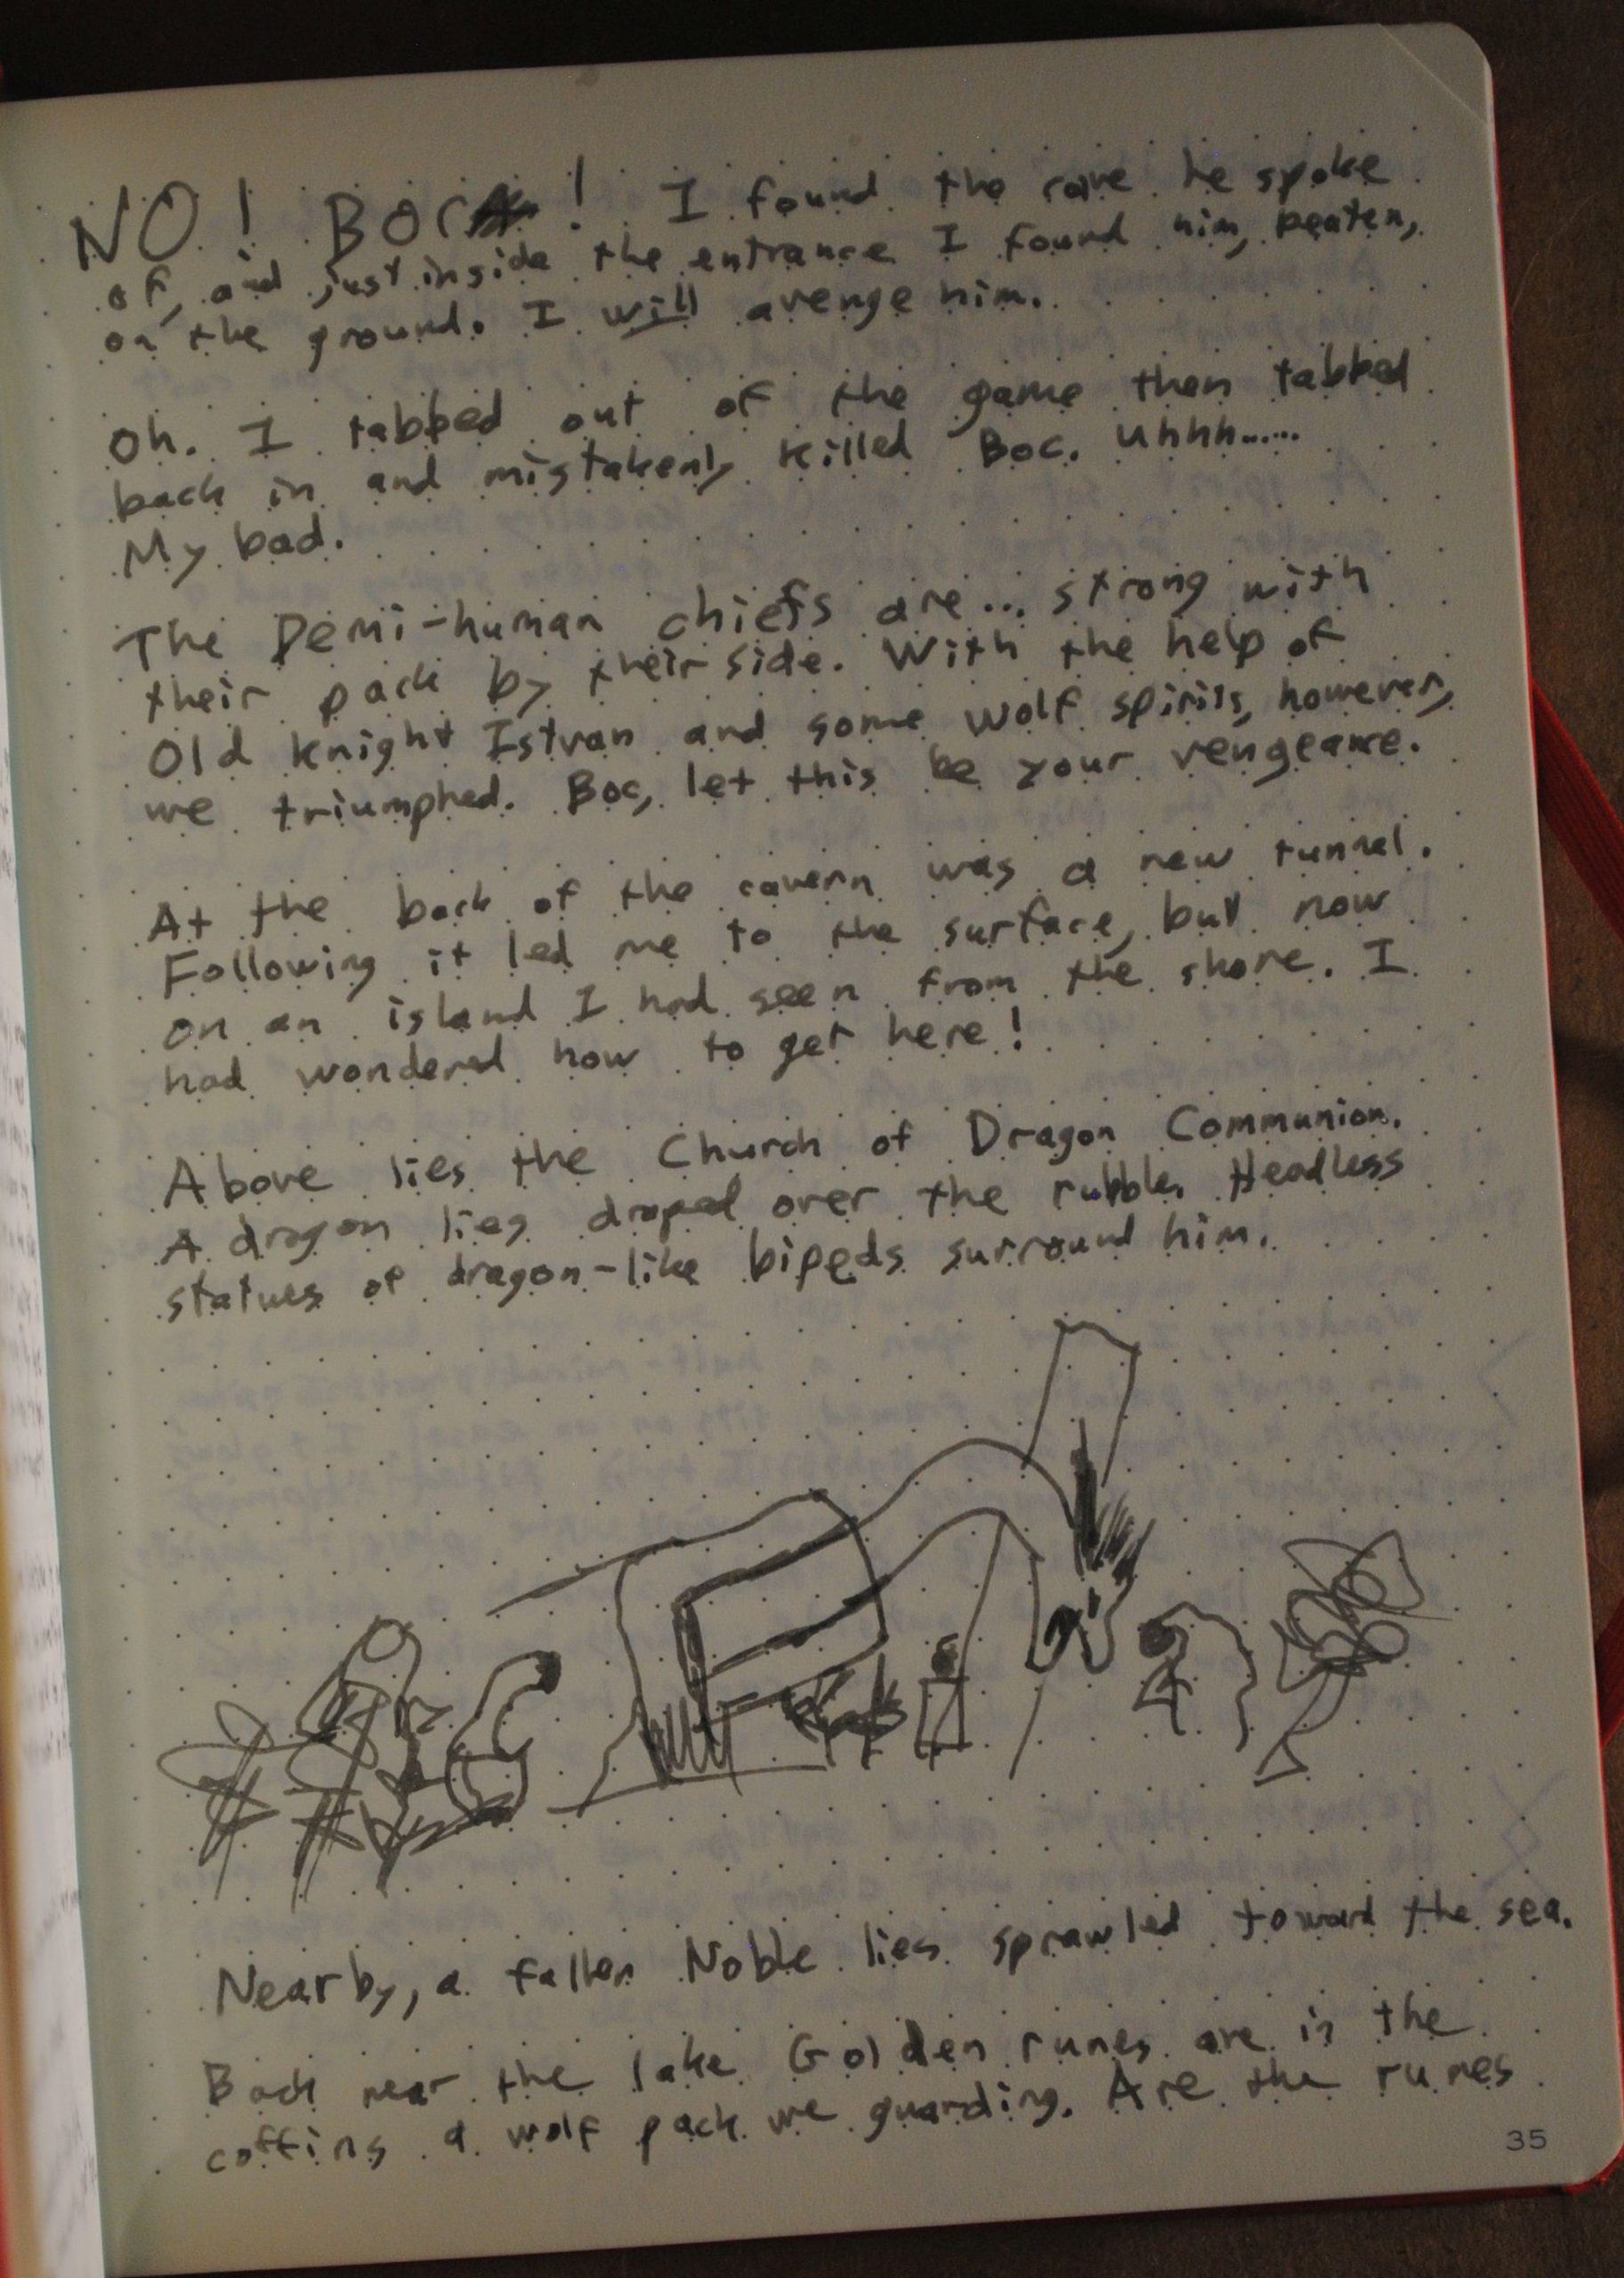 NO! BOC! I found the cave he spoke
of, and just inside the entrance I found him, beaten,
on the ground. I will avenge him.
Oh. I tabbed out of the game then tabbed
back in and mistakenly killed Boc. Uhhh......
My bad.
The Demi-human chiefs are... strong with
their pack by their side. With the help of
Old Knight Istvan and some wolf spirits, however,
we triumphed. Boc, let this be your vengeance.
At the back of the cavern was a new tunnel.
Following it led me to the surface, but now
on an island I had seen from the shore. I
had wondered how to get here!
Above lies the Church of Dragon Communion.
A dragon lies draped over the rubble. Headless
statues of dragon-like bipeds surround him.
Nearby, a fallen Noble lies sprawled toward the sea.
Back near the lake Golden runes are in the
coffins a wolf pack we guarding. Are the runes
35